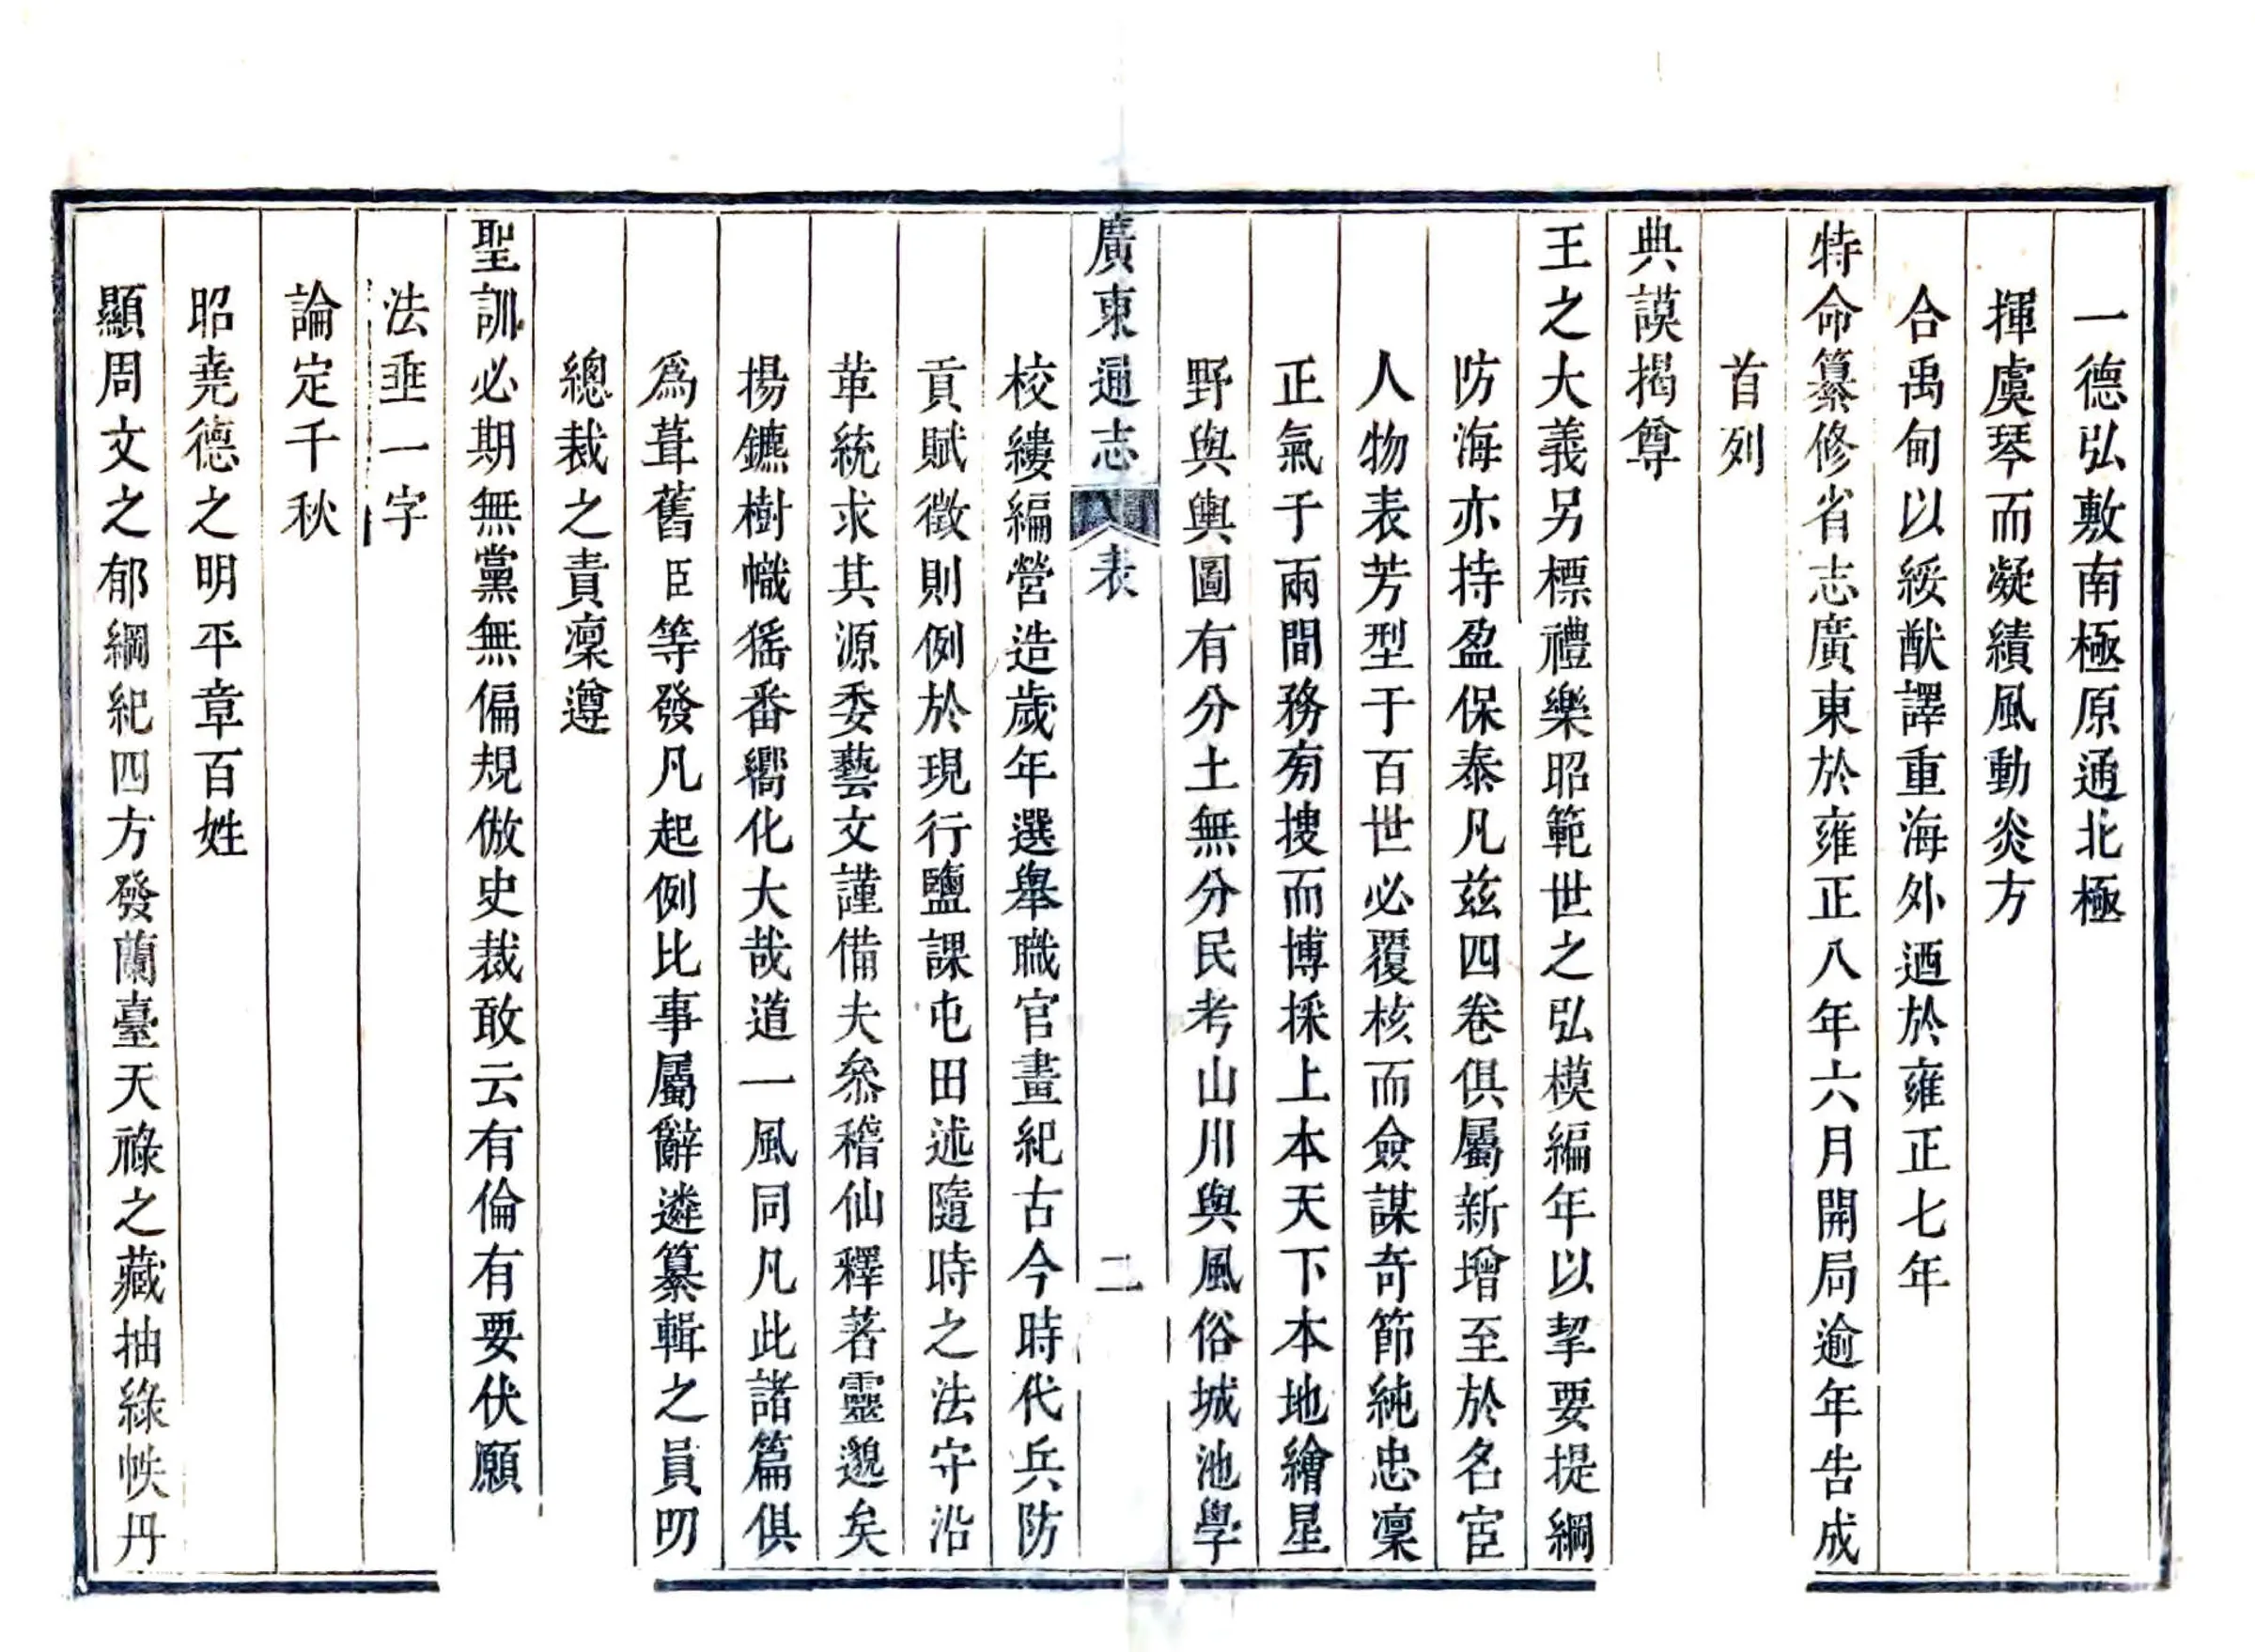 一德弘敷南極原通北極
揮虞琴而凝績風動炎方
合禹甸以綏猷譯重海外迺於雍正七年
特命纂修省志廣東於雍正八年六月開局逾年告成
首列
典謨揭尊
王之大義另標禮樂昭範世之弘模編年以挈要提綱
防海亦持盈保泰凡茲四卷俱屬新增至於名宦
人物表芳型于百世必覆核而僉謀奇節純忠凜
正氣于兩間務旁搜而博採上本天下本地繪星
野與輿圖有分土無分民考山川與風俗城池學
廣東通志 表 二
校縷編營造歲年選舉職官畫紀古今時代兵防
貢賦徵則例於現行鹽課屯田述隨時之法守沿
革統求其源委藝文謹備夫叅稽仙釋著靈邈矣
揚鑣樹幟猺番嚮化大哉道一風同凡此諸篇俱
爲葺舊臣等發凡起例比事屬辭遴纂輯之員叨
總裁之責凜遵
聖訓必期無黨無偏規倣史裁敢云有倫有要伏願
法垂一字
論定千秋
昭堯德之明平章百姓
顯周文之郁綱紀四方發蘭臺天祿之藏抽綠帙丹